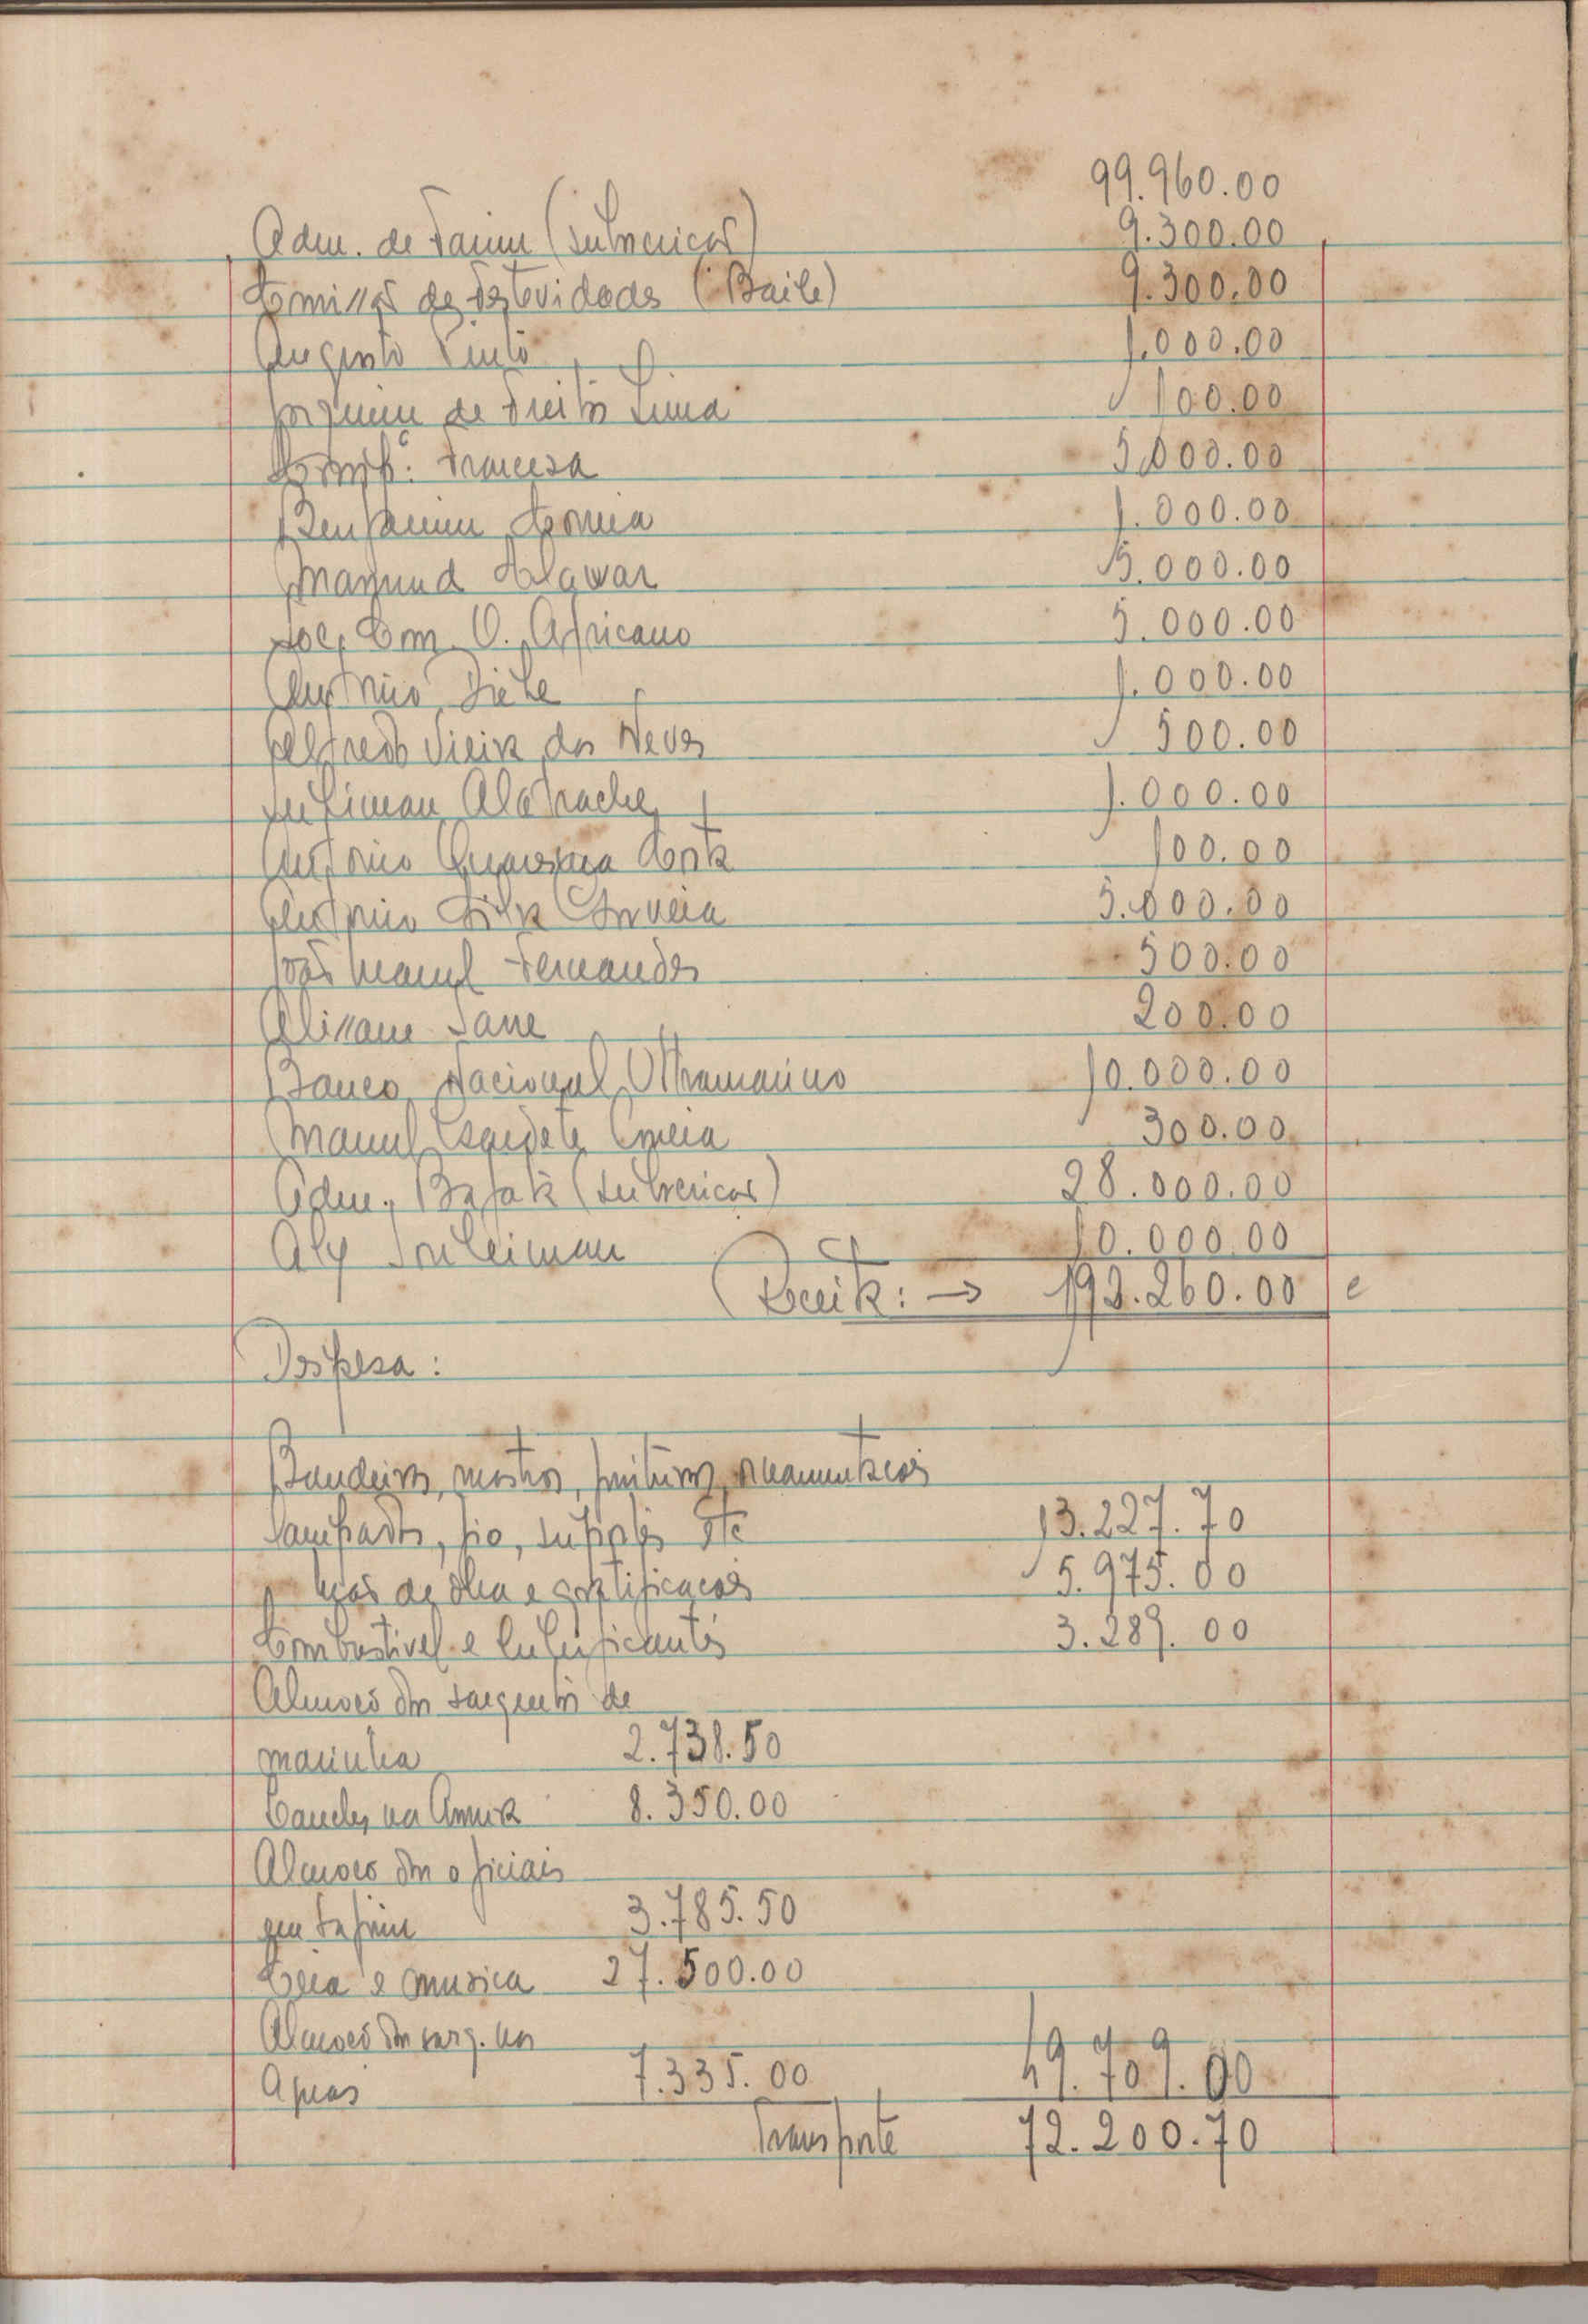 99.960.00
Adm. de Farim (subvenição) 9.300.00
Comissão de Festividades (Baile) 9.300.00
Augusto Pinto 1.000.00
Joaquim de Freitas Lima 100.00
Compª. Francesa 5.000.00
Benjamim Correia 1.000.00
Mamud Alawar 5.000.00
Soc. Com. O. Africano 5.000.00
António Diehe 1.000.00
Alfredo Vieira das Neves 500.00
Suliman Alatrache 1.000.00
António Quaresma Costa 100.00
António Silva Correia 5.000.00
João Manuel Fernandes 500.00
Alissane Sane 200.00
Banco Nacional Ultramarino 10.000.00
Manuel Correia 300.00
Adm. Bafatá (subvenicão) 28.000.00
Aly Souleiman 10.000.00
Receita: → 192.260.00 e
Despesa:
Bandeiras, mastros, pinturas, ornamentacões
lampadas, fio, suportes etc 13.227.70
Mão de obra e gratificacoes 5.975.00
Combustivel e lubrificantes 3.289.00
Almoco dos sargentos de
marinha 2.738.50
Lanche, na Amura 8.350.00
Almoco dos oficiais
em Safim 3.785.50
Ceia e musica 27.500.00
Almoco dos sarg. nos
Apeas 7.335.00 49.709.00
Transporte 72.200.70